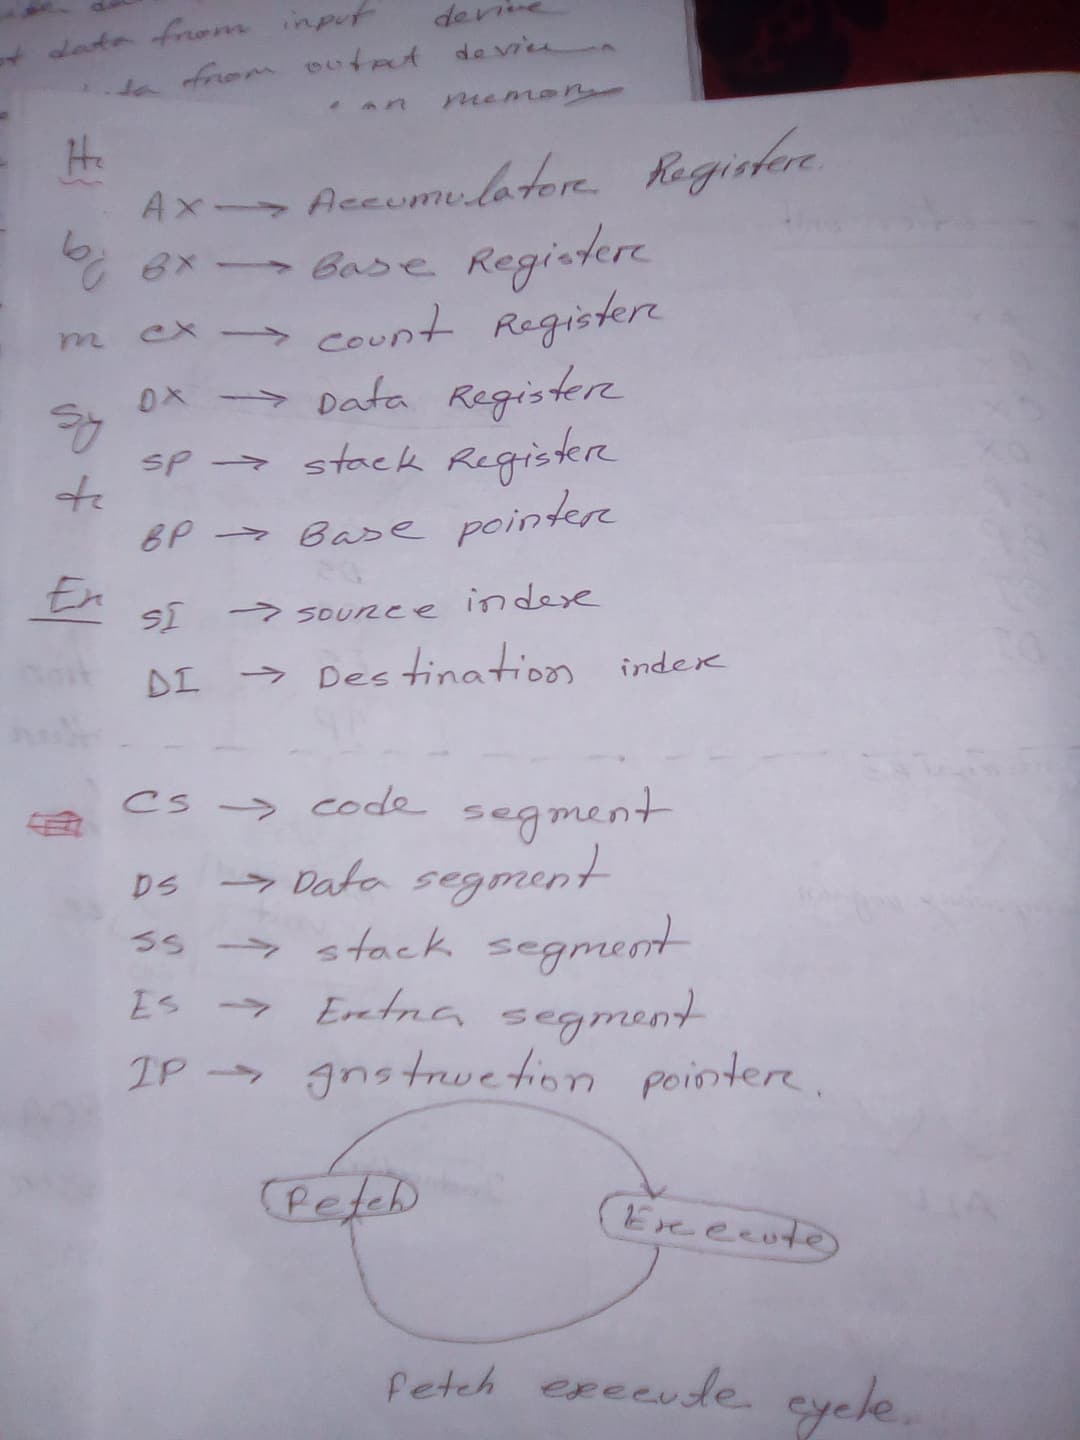 data from input device
from output device
an memory
AX → Accumulator Register.
BX → Base Register
CX → count Register
DX → Data Register
SP → stack Register
BP → Base pointer
SI → source index
DI → Destination index
CS → code segment
DS → Data segment
SS → stack segment
ES → Extra segment
IP → Instruction pointer.
Fetch
Execute
fetch execute cycle.